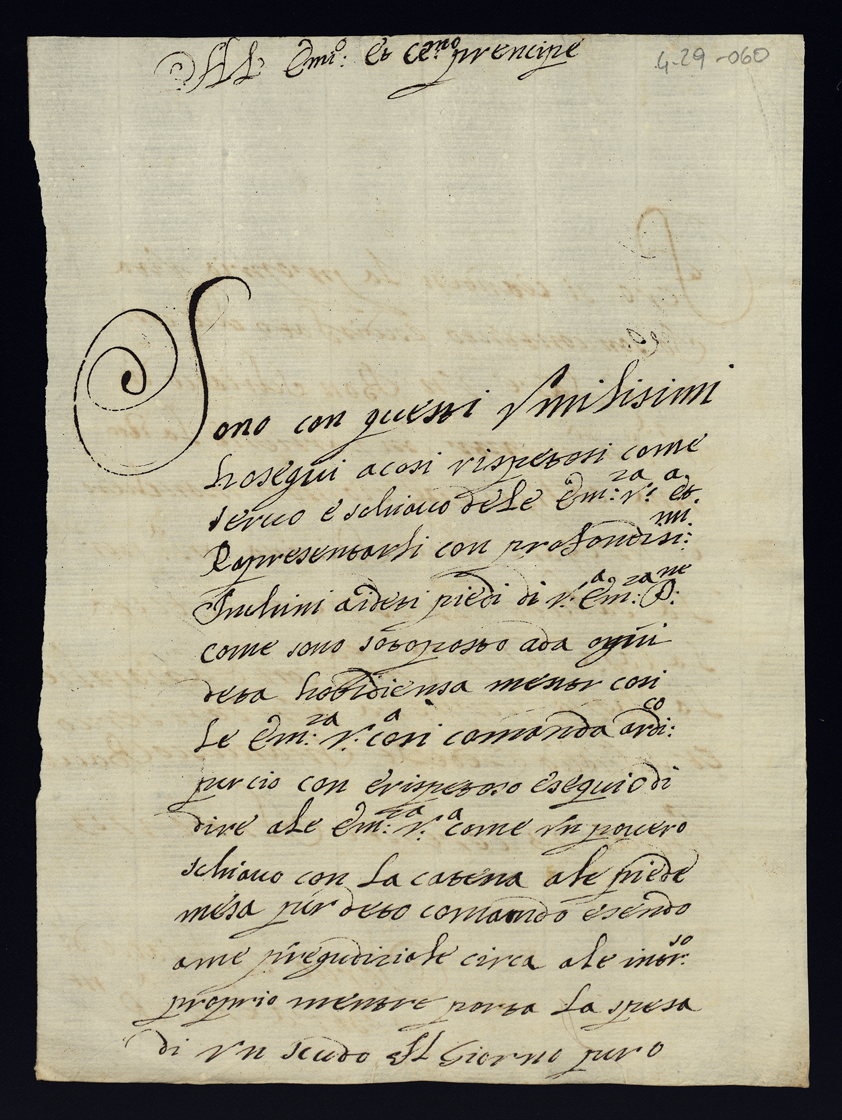 Al Emi.o et Ce.mo prencipe
4-29-060
Sono con questi Vmilisimi
hosequi a cosi rispetosi come
servo e schiavo dele Em:za V.a et
Rapresentarli con profondisi:mi
Inchini a ideti piedi di V.a Em:za P:ne
come sono sotoposto ada ogni
deta hobidiensa mentr cosi
Le Em:za V.a cosi comanda ardi:co
percio con e rispetoso esequio di
dire ale Em:za V.a come vn povero
schiavo con La catena ale piede
mesa per deto comando esendo
ame pregudiziale circa ale intr:so
proprio mentre porta La spesa
di vn scudo Il Giorno pero